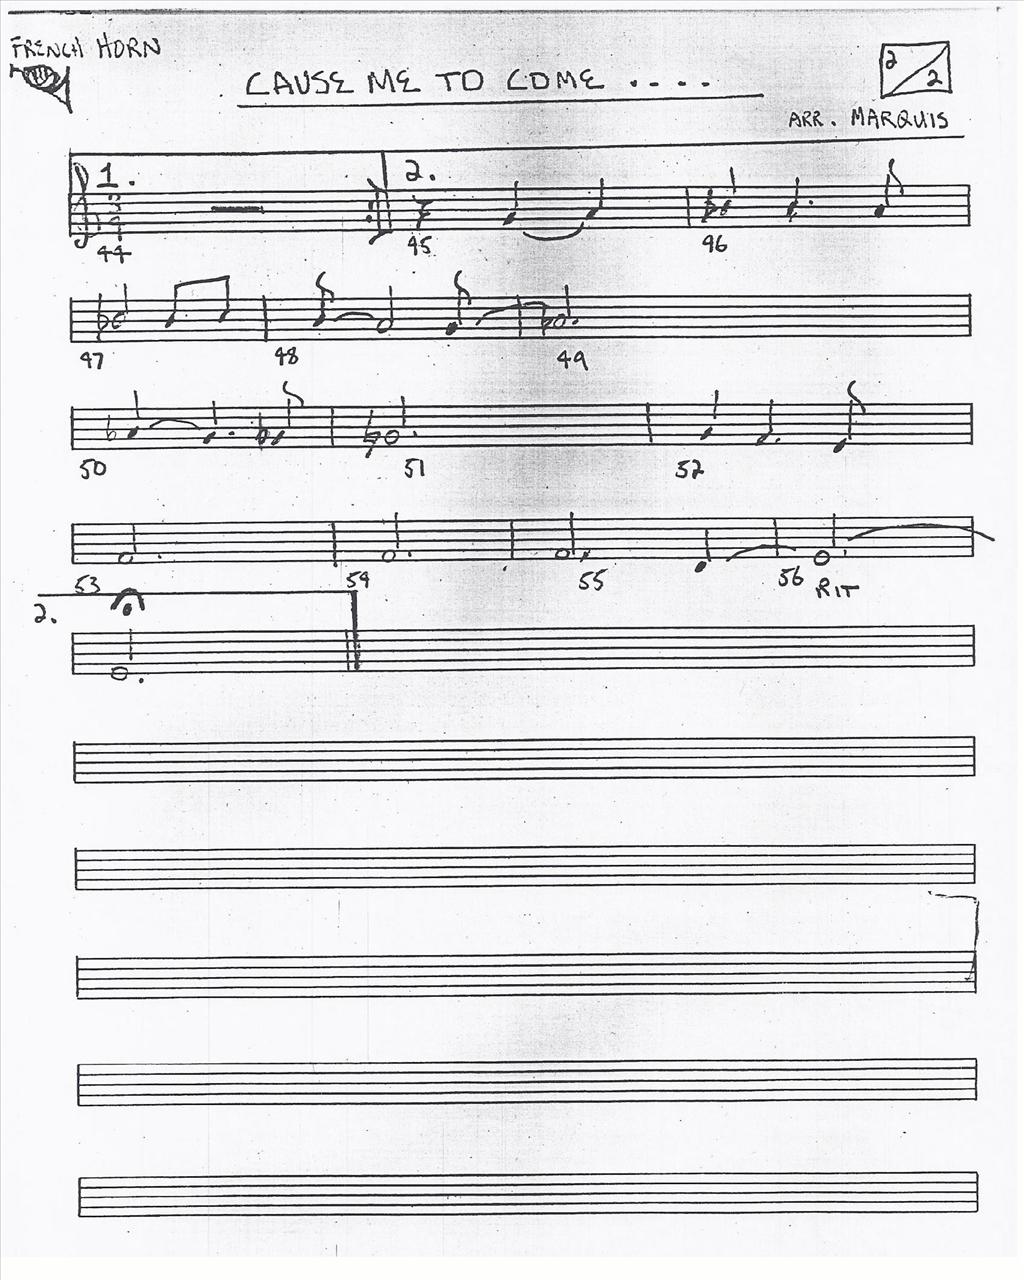 FRENCH HORN
CAUSE ME TO COME ....
2/2
ARR. MARQUIS
1. 2.
3
4
44 45 46
47 48 49
50 51 52
53 54 55 56 RIT
2.